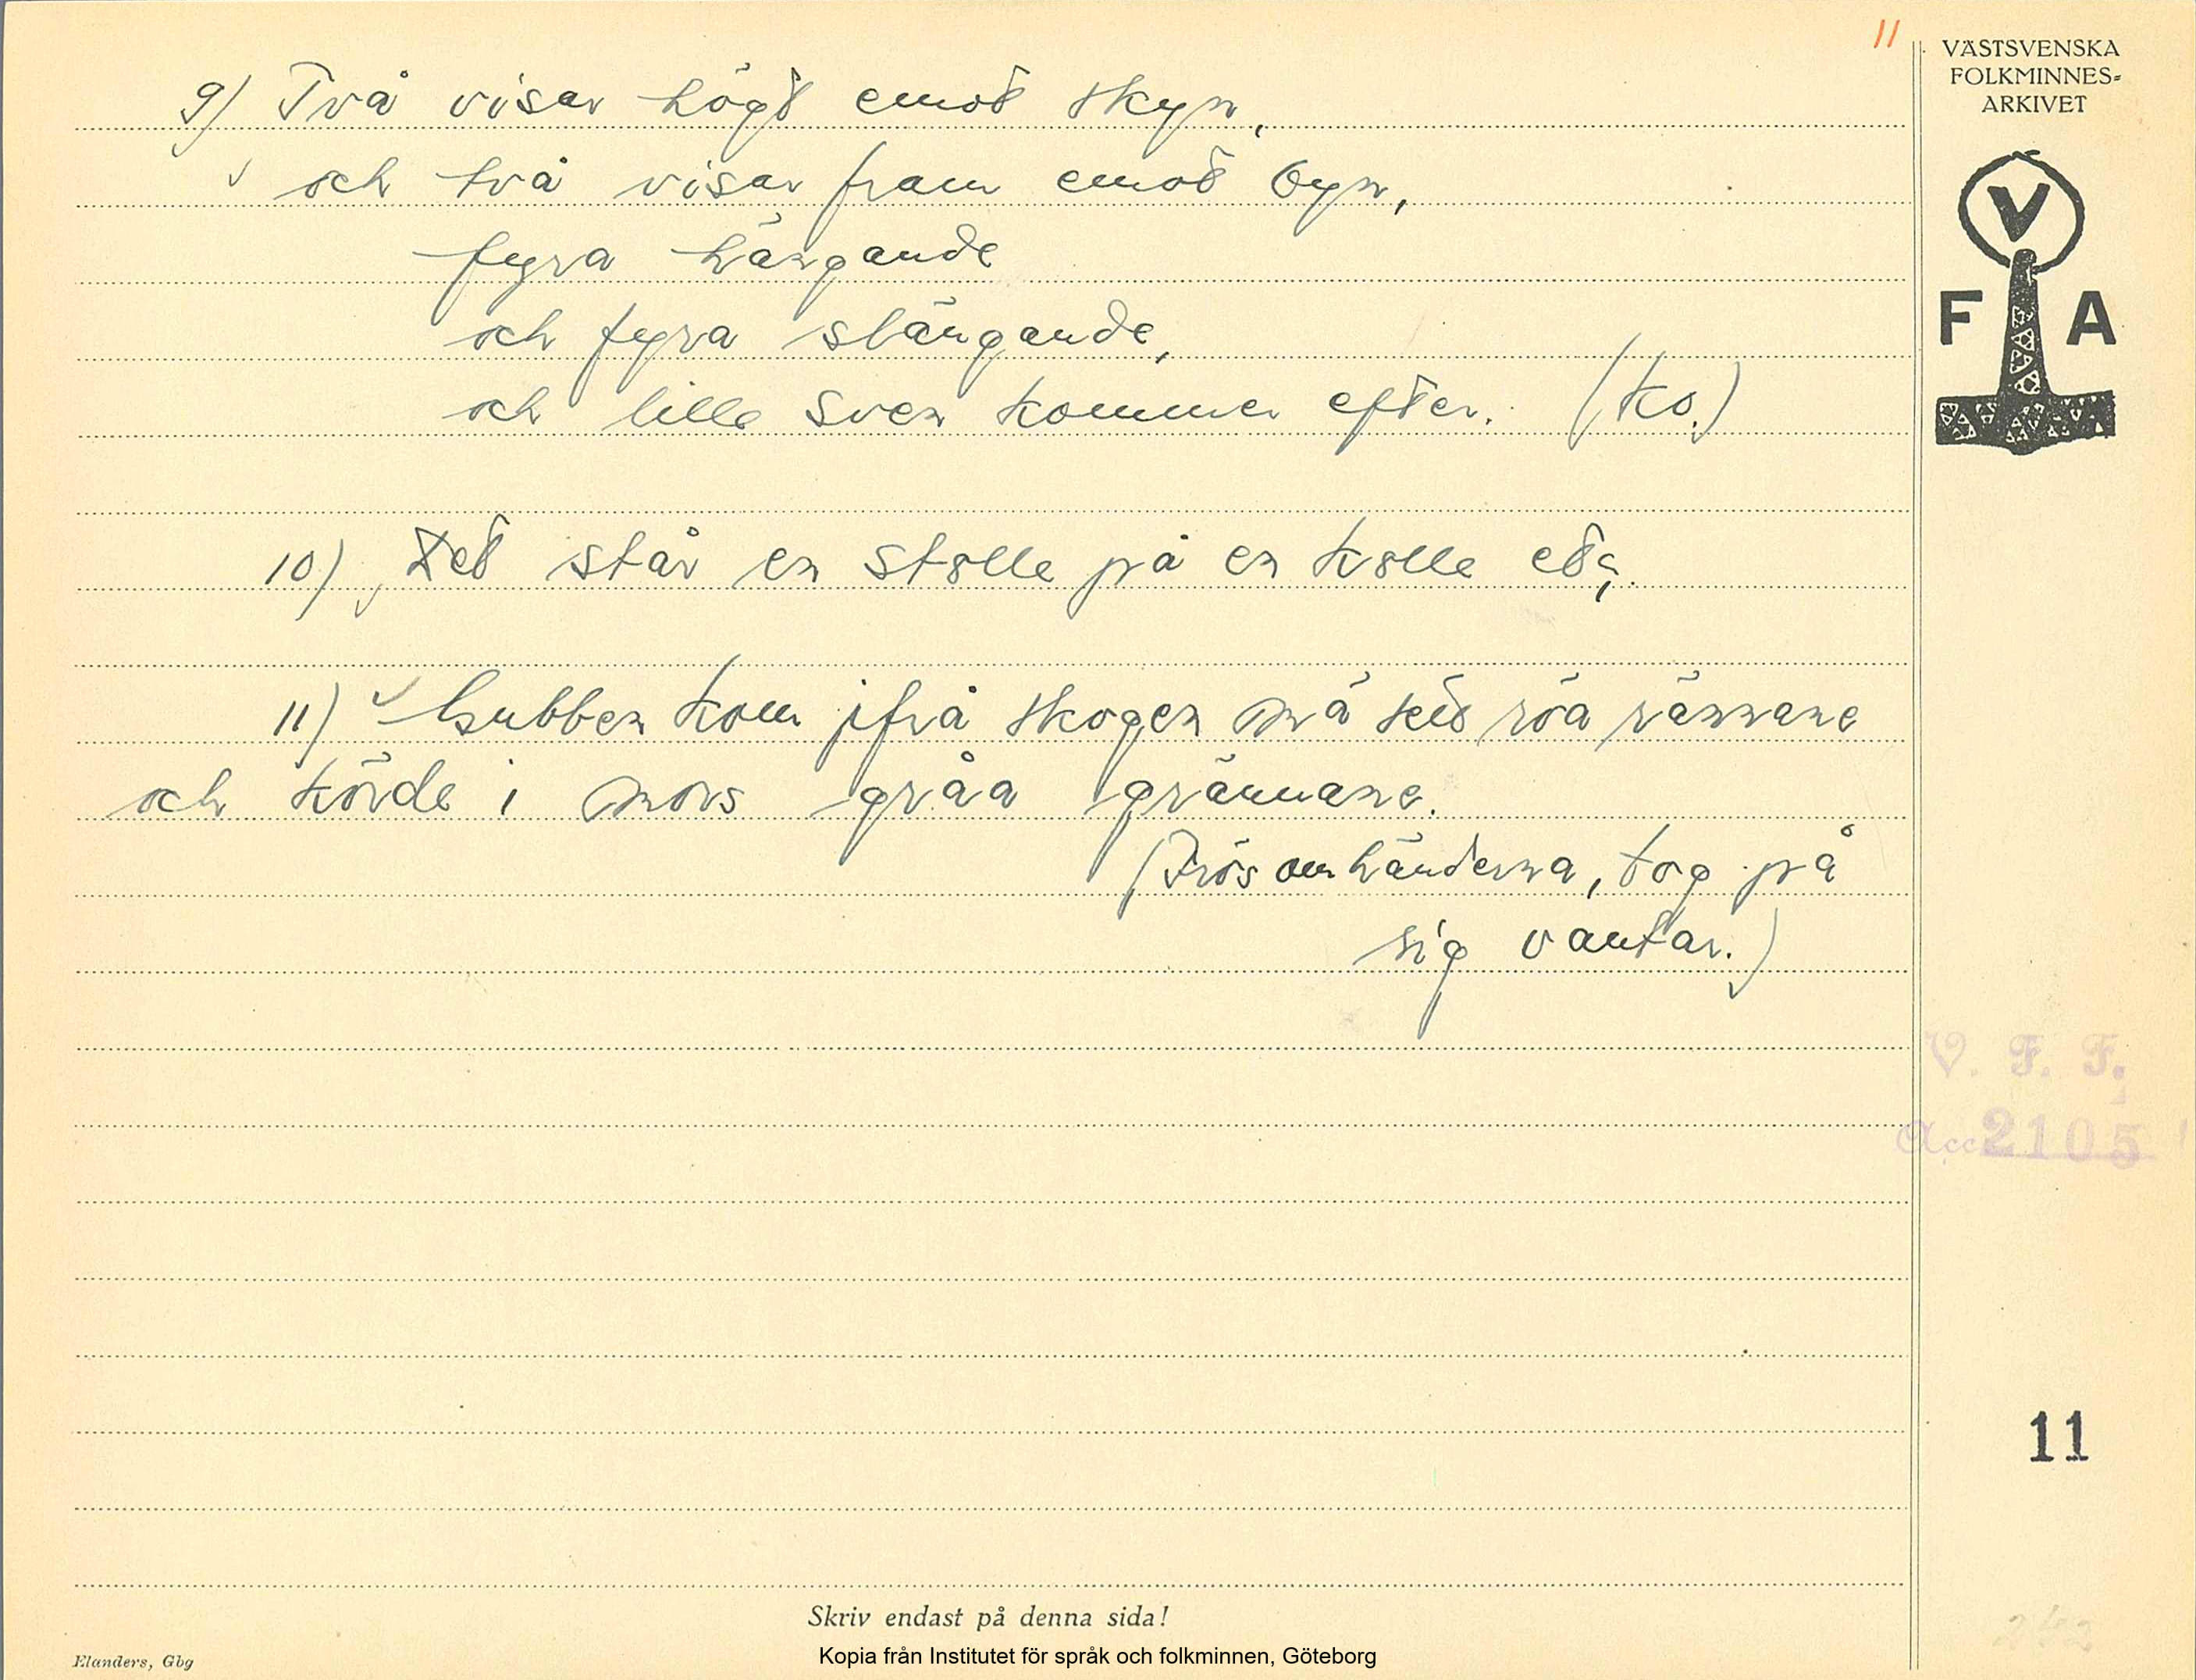 11
VÄSTSVENSKA
FOLKMINNES-
ARKIVET
V
F A
9) Två visar högt emot skyn,
och två visar fram emot byn,
fyra hängande
och fyra slängande,
och lille Sven kommer efter. (Ko.)
10) Det står en stolle på en kolle etc.
11) Gubben kom ifrå skogen mä röa rännane
och körde i mors gråa grännane.
(Frös om händerna, tog på
sig vantar.)
V. F. F.
Acc 2105
11
Skriv endast på denna sida!
Kopia från Institutet för språk och folkminnen, Göteborg
Elanders, Gbg